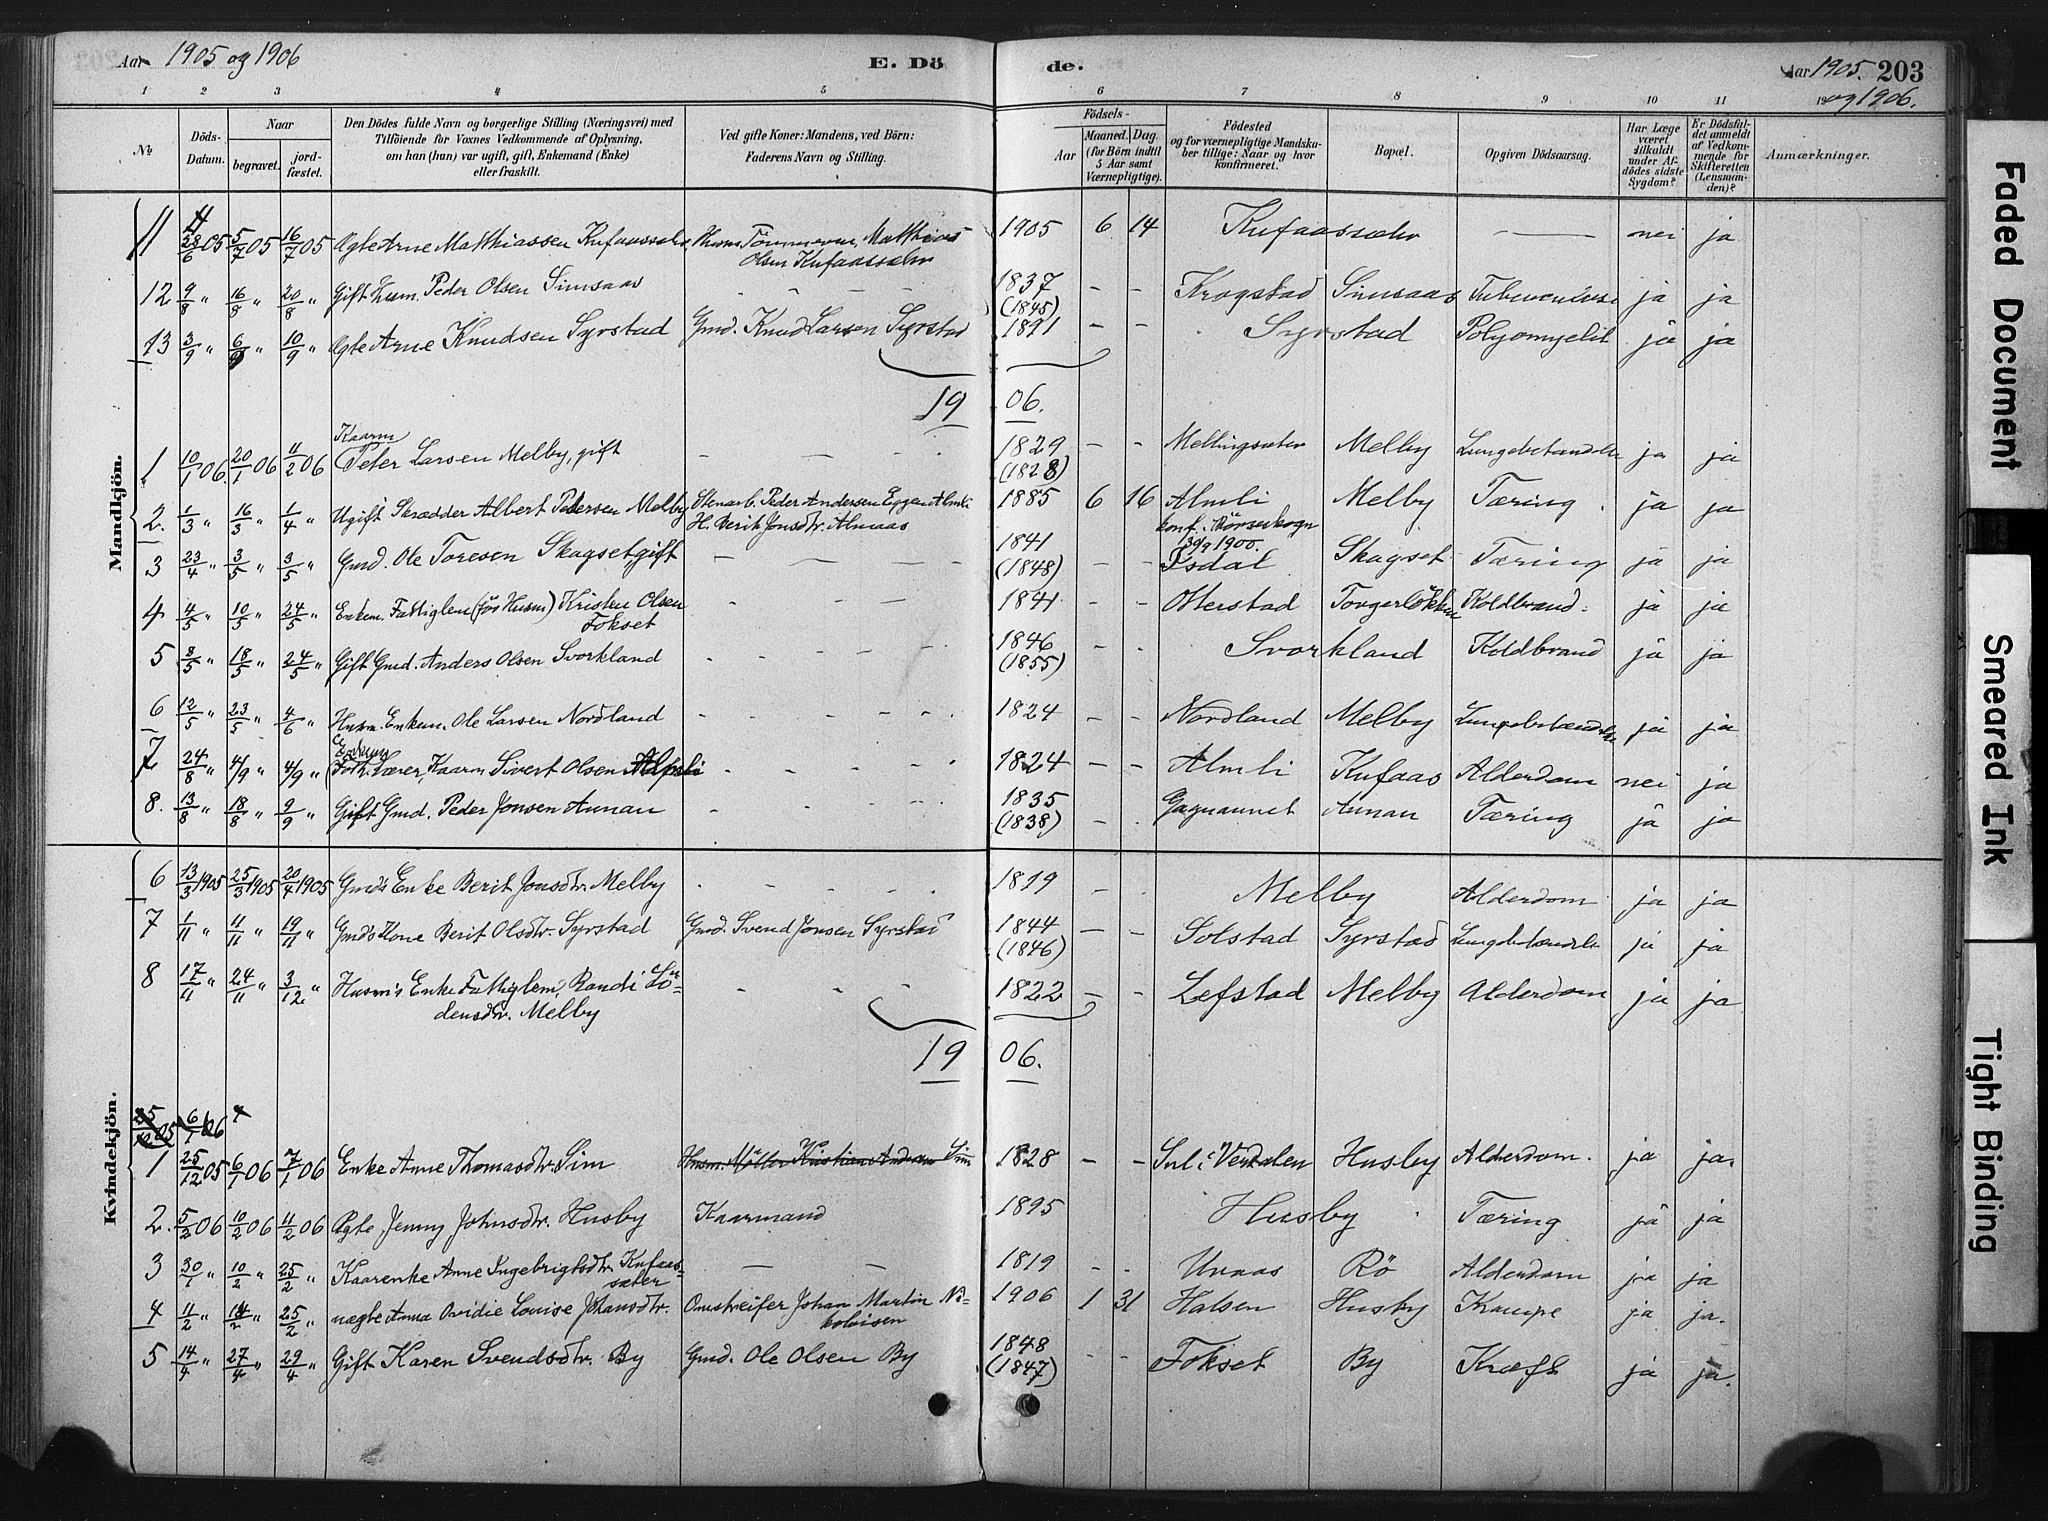 Aar 1905 og 1906
E. Dö
de.
Aar 1905. 203
og 1906.
1 2 3 4 5 6 7 8 9 10 11 12
No
Döds-Datum.
Naar
begravet.
jord-fæstet.
Den Dödes fulde Navn og borgerlige Stilling (Næringsvei) med
Tilföiende for Voxnes Vedkommende af Oplysning,
om han (hun) var ugift, gift, Enkemand (Enke)
eller fraskilt.
Ved gifte Koner: Mandens, ved Börn:
Faderens Navn og Stilling.
Födsels-
Aar
Maaned. Dag.
(for Börn indtil
5 Aar samt
Værnepligtige).
Födested
og for værnepligtige Mandska-
ber tillige: Naar og hvor
konfirmeret.
Bopæl.
Opgiven Dödsaarsag.
Har Læge
været
tilkaldt
under Af-
dödes sidste
Sygdom?
Er Dödsfal-
det anmeldt
af Vedkom-
mende for
Skifteretten
(Lensman-
den)?
Anmærkninger.
Mandkjön.
11 28/6 05 5/7 05 16/7 05 Ægte Arne Matthiassen Kufaassæter Husm. Matthias 1905 6 14 Kufaassæter — nei ja
Olsen Kufaassæter
12 9/8 " 16/8 " 20/8 " Gift Husm. Peder Olsen Simsaas - - - - 1837 - - Krogstad Simsaas Tuberculose ja ja
(1845)
13 3/9 " 6/9 " 10/9 " Ægte Arne Knudsen Syrstad Gmd. Knud Larsen Syrstad 1891 - - Syrstad Polyomyelit ja ja
19 06.
Kaarm
1 10/1 06. 20/1 06 11/2 06 Peter Larsen Melby, gift - - - - 1829 - - Mellingsæter Melby Lungebetændelse ja ja
(1828)
2. 1/3 " 16/3 " 1/4 " Ugift Skrædder Albert Pedersen Melby Stenarb. Peder Andersen Eggen Almli 1885 6 16 Almli Melby Tæring. ja ja
H. Berit Jonsdtr. Almaas konf. i Börseskogn
30/9 1900.
3 23/4 " 3/5 " 3/5 " Gmd. Ole Toresen Skagset, gift - - - - 1841 - - Isdal Skagset Tæring ja ja
(1848)
4 4/5 " 10/5 " 24/5 " Enkem. Fattiglem (för Husm) Kristen Olsen - - - 1841 - - Otterstad Torgerlökken Koldbrand. ja ja
Fokset
5 8/5 " 18/5 " 24/5 " Gift Gmd. Anders Olsen Svorkland - - - - - 1846 - - Svorkland Koldbrand ja ja
(1855)
6 12/5 " 23/5 " 4/6 " Husm. Enkem. Ole Larsen Nordland - - - - - 1824 - - Nordland Melby Lungebetændelse ja ja
7 24/8 " 4/9 " 4/9 " Kaarm Sivert Olsen - - - - - 1824 - - Almli Kufaas Alderdom nei ja
8. 13/8 " 18/8 " 9/9 " Gift Gmd. Peder Jonsen Aunan - - - - - 1835 - - Gagnaunet Aunan Tæring ja ja
(1838)
Kvindekjön.
6 13/3 1905 25/3 1905 20/4 1905 Gmds Enke Berit Jonsdtr. Melby - - - - 1819 - - Melby Alderdom ja ja
7 1/11 " 11/11 " 19/11 " Gmds Kone Berit Olsdtr. Syrstad Gmd. Svend Jonsen Syrstad 1844 - - Solstad Syrstad Lungebetændelse ja ja
(1846)
8 17/11 " 24/11 " 3/12 " Husm's Enke Fattiglem, Randi Lö- - - - - 1822 - - Lefstad Melby Alderdom ja ja
densdtr. Melby
19 06.
6/1 06
1 25/12 05 6/1 06 7/1 06 Enke Anne Thomasdtr. Sim Husm. Møller Kristian Andr Sim 1828 - - Sul i Verdalen Husby Alderdom. ja ja.
2. 5/2 06 10/2 06 11/2 06 Ægte Jenny Johnsdtr. Husby Kaarmand 1895 Husby Tæring ja ja
3 30/1 " 10/2 " 25/2 " Kaarenke Anne Ingebrigtsdtr. Kufaas- — — 1819 - - Unaas Rö Alderdom ja ja
sæter
4 11/2 " 14/2 " 25/2 " uægte Anna Ovidie Louise Johansdtr. Omstreifer Johan Martin Ni- 1906 1 31 Halsen Husby Krampe ja ja.
kolaisen
5 14/4 " 27/4 " 29/4 " Gift Karen Svendsdtr. By Gmd. Ole Olsen By 1848 - - Fokset By Kræft ja ja.
(1847)
Faded Document
Smeared Ink
Tight Binding